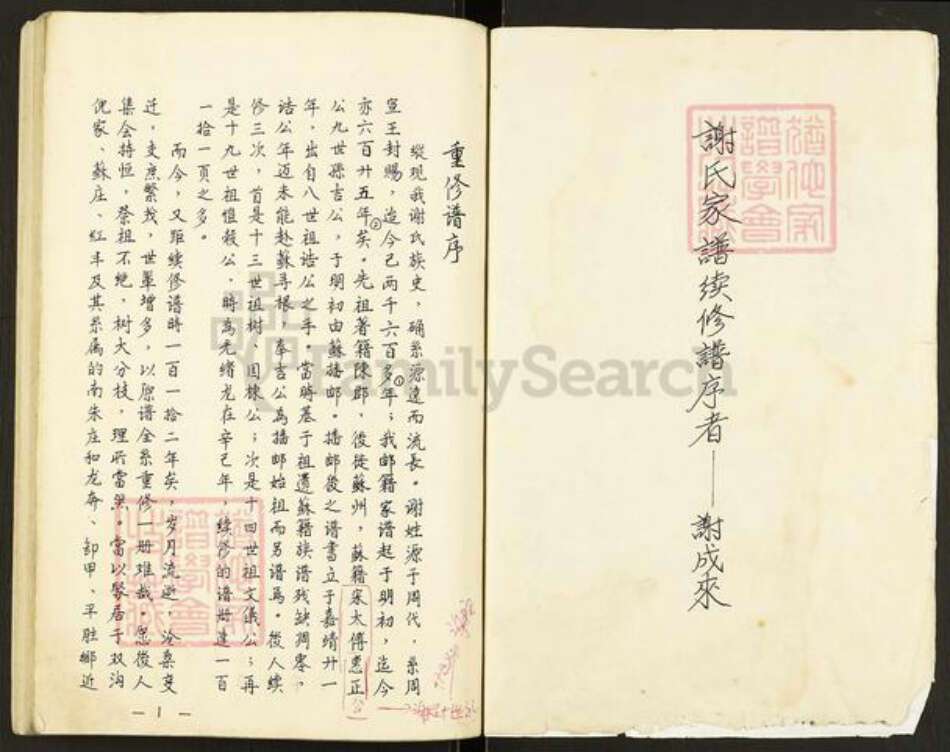 謝氏家譜续修譜序者——謝成來
重修谱序
縱現我谢氏族史、确系源遠而流長。谢姓源于周代．系周
宣王封賜，迄今已两千六百多年①；我邮籍家谱起于明初，迄今
亦六百廿五年②矣。先祖著籍陳郡、後徙蘇州，蘇籍宋太傅惠正
公九世孫吉公，于明初由蘇播邮。播邮後之谱書立于嘉靖廿一
年，出自八世祖诰公之手。當時基于祖遺蘇籍族谱残缺凋零，
诰公年迈未能赴蘇寻根，奉吉公為播邮始祖而另谱焉。後人续
修三次，首是十三世祖树、国棟公；次是十四世祖文儀公；再
是十九世祖惟毅公。時為光绪龙在辛已年，续修的谱册達一百
一拾一頁之多。
而今，又距续修谱時一百一拾二年矣，岁月流逝，沧桑变
迁，支庶繁栽，世輩增多，以原谱全系重修一册难哉。恐後人
集会持恒，祭祖不绝，树大分枝，理所當然。當以聚居于双沟
倪家、蘇庄、红丰及其系属的南朱庄和龙奔、卸甲、平胜鄉近
—1—
FamilySearch